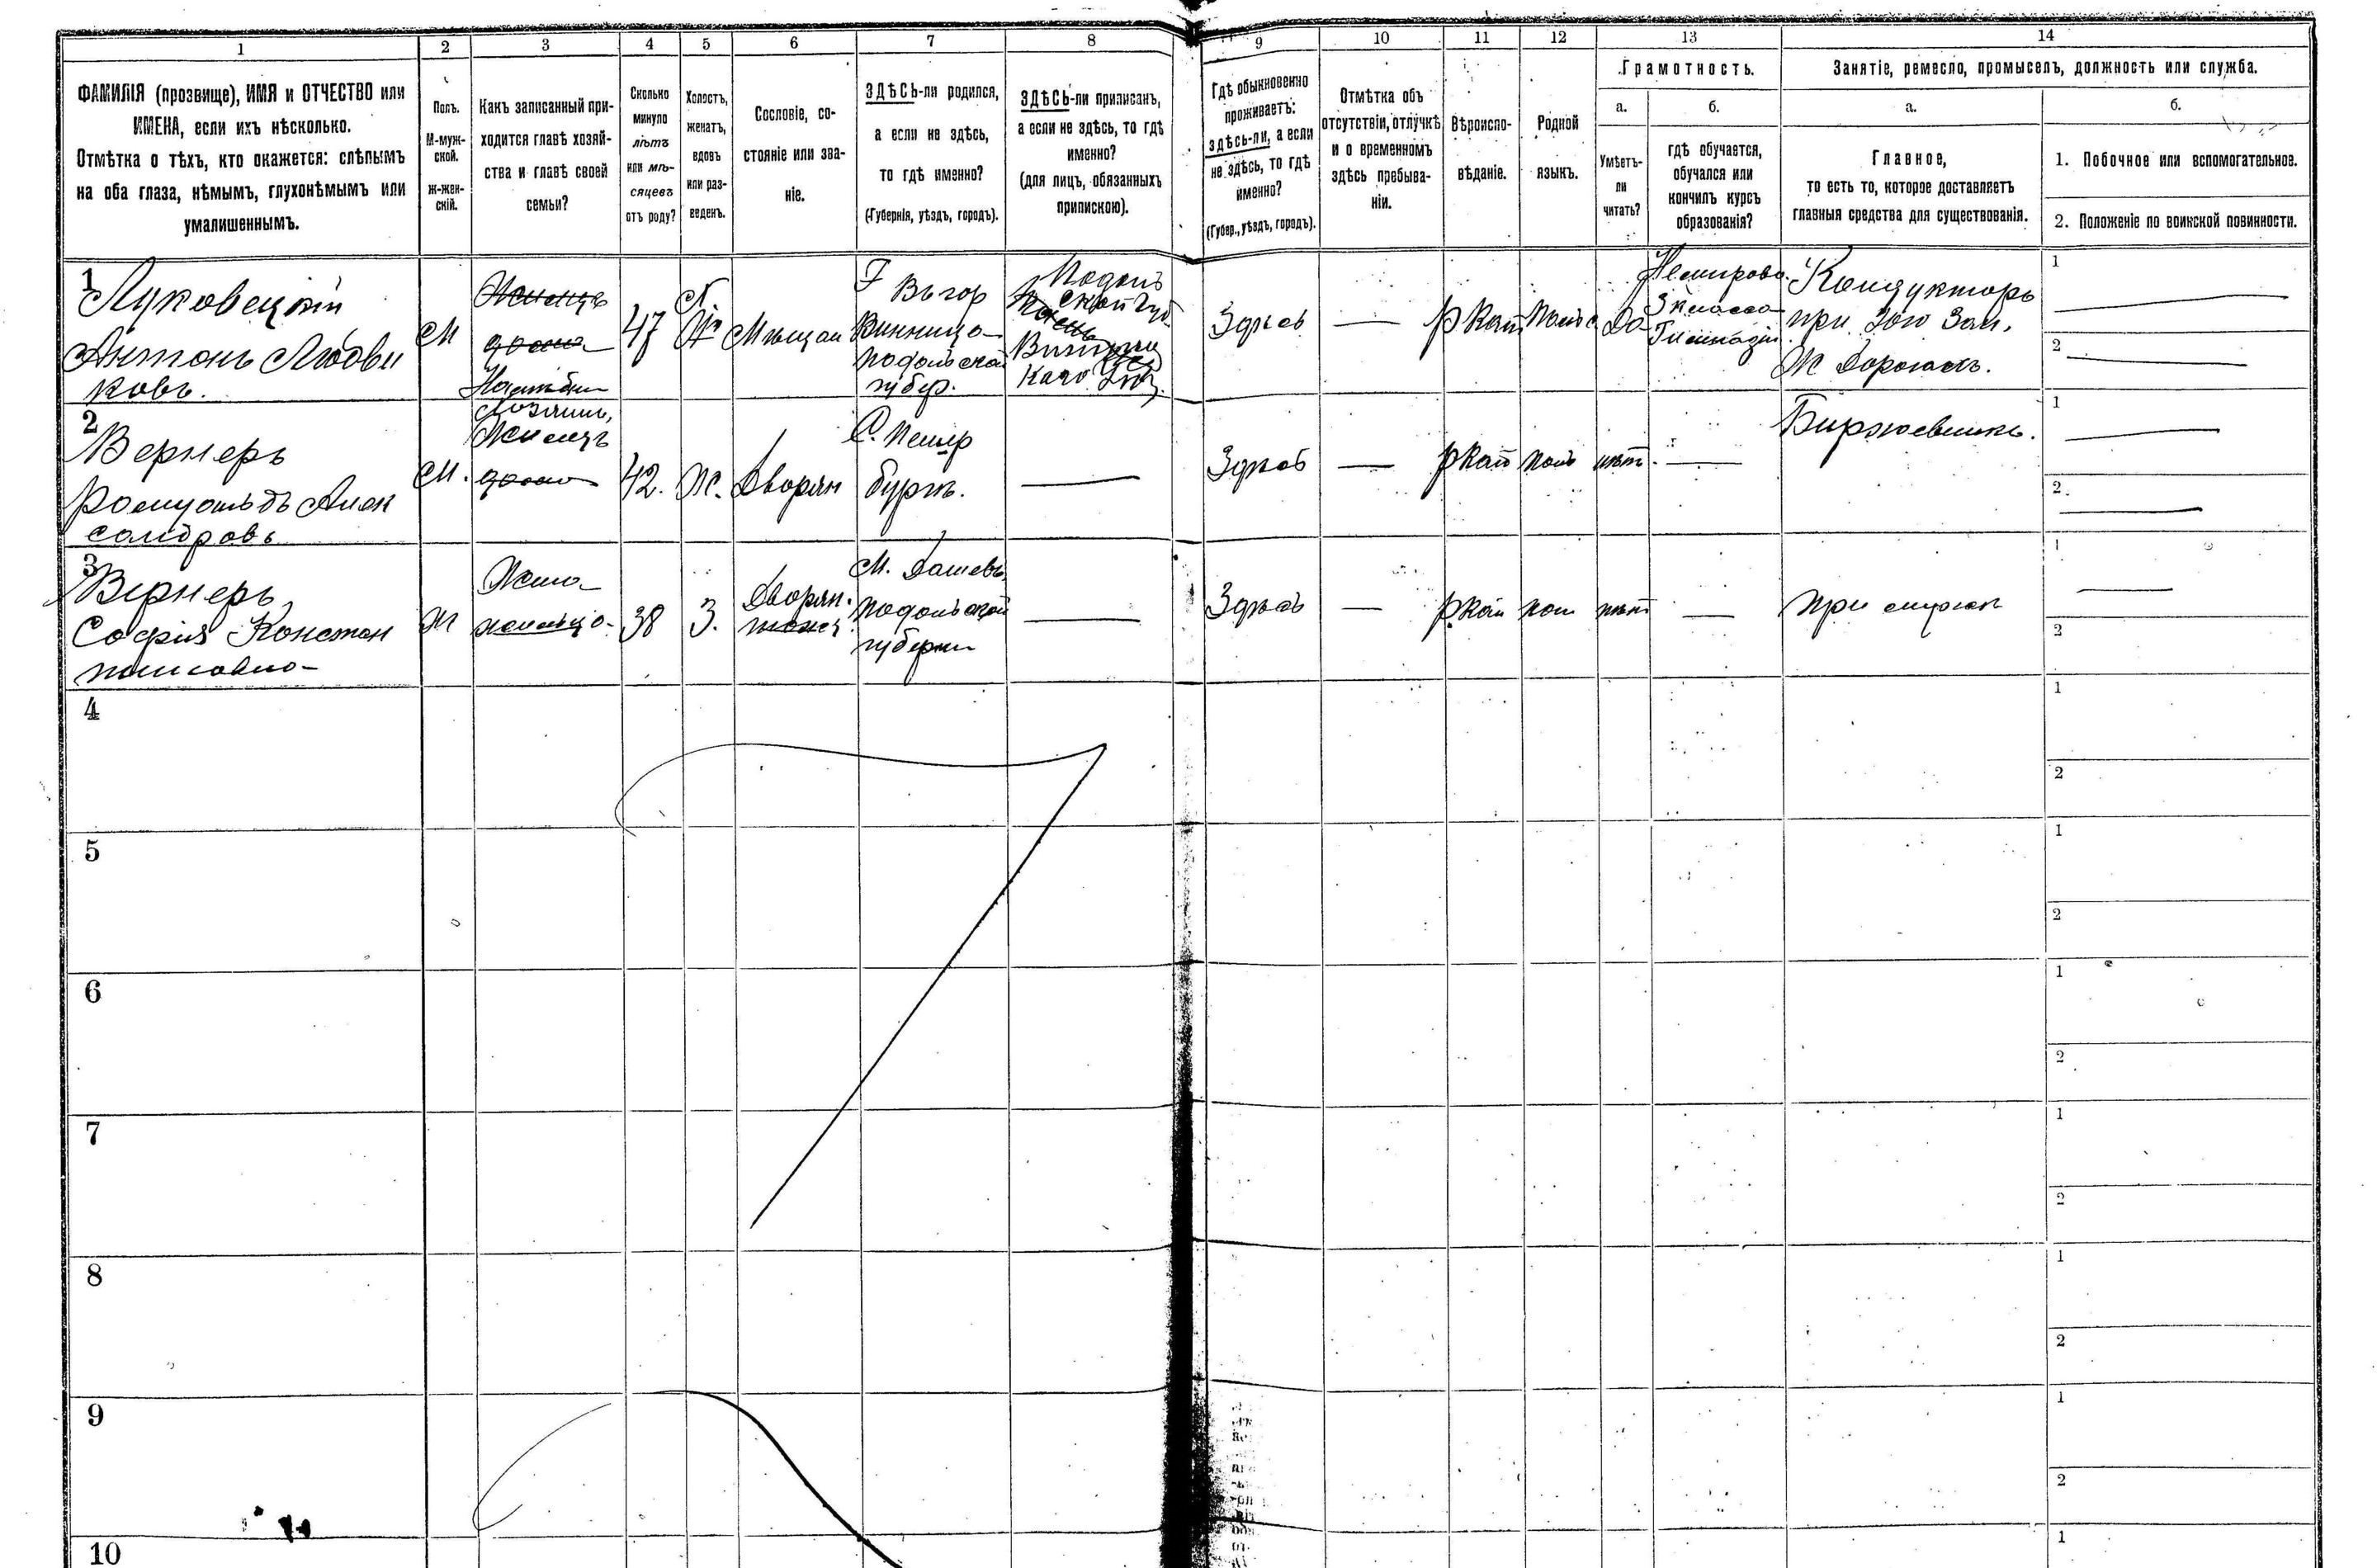 1
2
3
4
5
6
7
8
9
10
11
12
13
14
ФАМИЛІЯ (прозвище), ИМЯ и ОТЧЕСТВО или
ИМЕНА, если ихъ нѣсколько.
Отмѣтка о тѣхъ, кто окажется: слѣпымъ
на оба глаза, нѣмымъ, глухонѣмымъ или
умалишеннымъ.
Полъ.
М-муж-
ской.
ж-жен-
скій.
Какъ записанный при-
ходится главѣ хозяй-
ства и главѣ своей
семьи?
Сколько
минуло
лѣтъ
или мѣ-
сяцевъ
отъ роду?
Холостъ,
женатъ,
вдовъ
или раз-
веденъ.
Сословіе, со-
стояніе или зва-
ніе.
ЗДѢСЬ-ли родился,
а если не здѣсь,
то гдѣ именно?
(Губернія, уѣздъ, городъ).
ЗДѢСЬ-ли приписанъ,
а если не здѣсь, то гдѣ
именно?
(для лицъ, обязанныхъ
припискою).
Гдѣ обыкновенно
проживаетъ:
здѣсь-ли, а если
не здѣсь, то гдѣ
именно?
(Губер., уѣздъ, городъ).
Отмѣтка объ
отсутствіи, отлучкѣ
и о временномъ
здѣсь пребыва-
ніи.
Вѣроиспо-
вѣданіе.
Родной
языкъ.
Грамотность.
а.
Умѣетъ-
ли
читать?
б.
гдѣ обучается,
обучался или
кончилъ курсъ
образованія?
Занятіе, ремесло, промыселъ, должность или служба.
а.
Главное,
то есть то, которое доставляетъ
главныя средства для существованія.
б.
1. Побочное или вспомогательное.
2. Положеніе по воинской повинности.
1
Луковецкій
Антонъ Людви
ковъ.
М
Жилецъ
дома
47
Мѣщан
Г
Въ гор
Винница
Подольской
губер.
Подоль
ской губ
Здѣсь
—
р кат
Польс
Да
Немиров.
3 класса
Гимназіи
Кондукторъ
при Юго Зап.
Ж Дорогахъ.
1
2
2
Вернеръ
Ромуальдъ Алек
сандровъ
М.
Жилецъ
дома
42.
Ж.
Дворян
С. Петер
бургъ.
—
Здѣсь
—
р кат
поль
нѣт.
—
Биржевикъ.
1
2
3
Вернеръ
Софія Констан
тиновна
Ж
Жена
жильца
38
З.
Дворян.
М. Дашевъ
Подольской
губерни
—
Здѣсь
—
р кат
пол
нѣт
—
При мужѣ
1
2
4
1
2
5
1
2
6
1
2
7
1
2
8
1
2
9
1
2
10
1